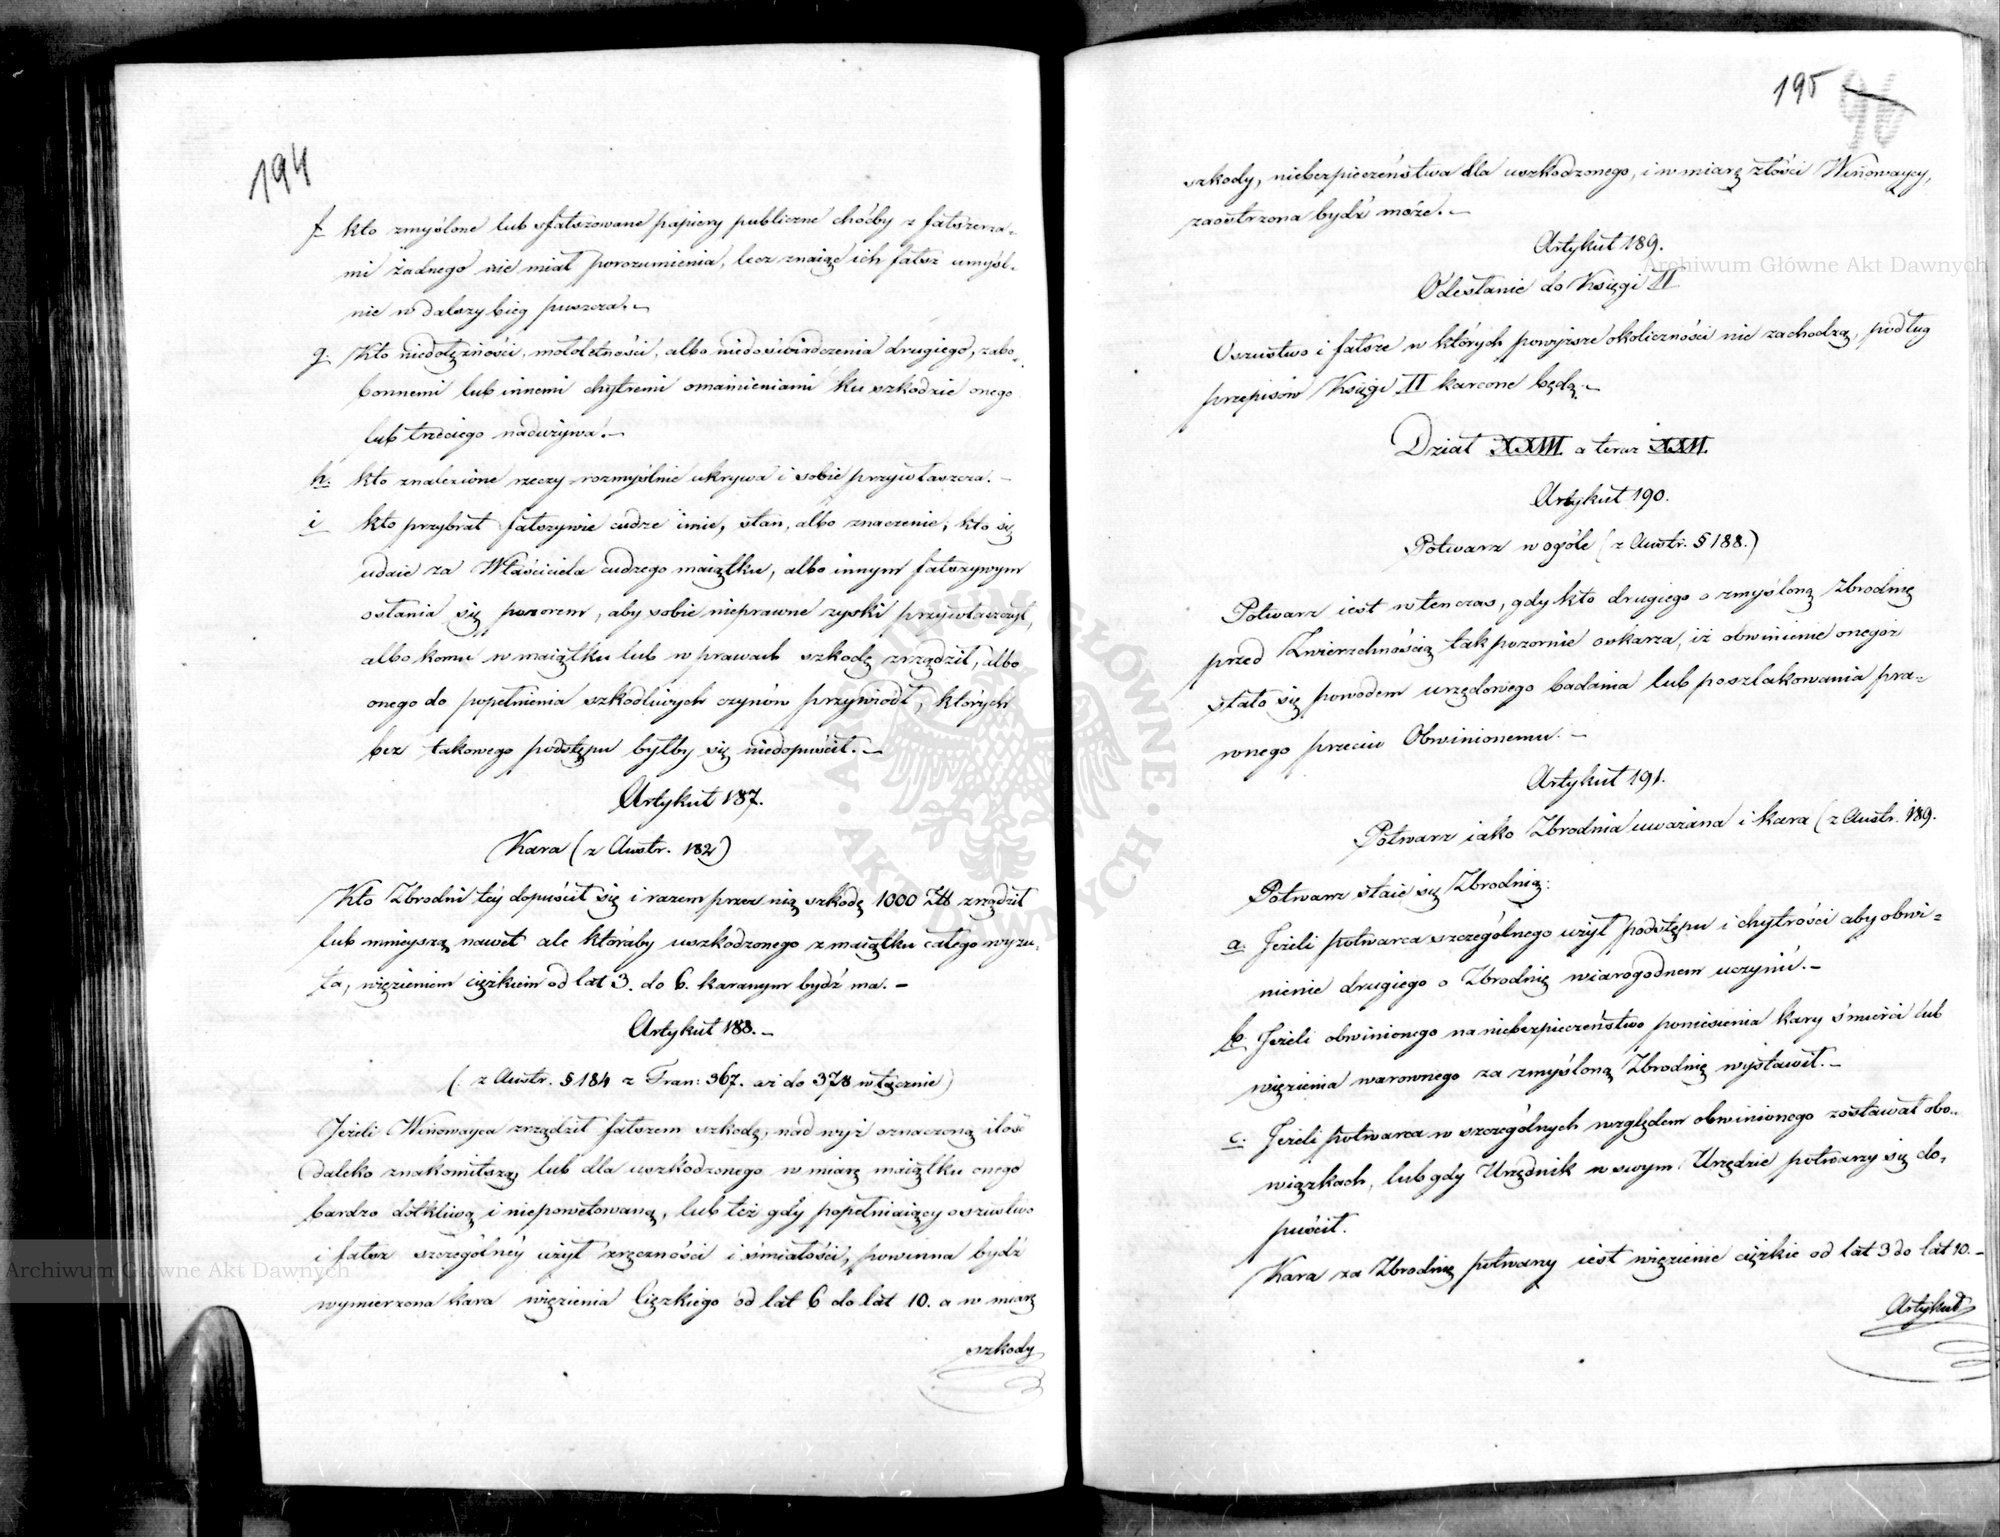 194
f kto zmyślone lub sfałszowane papiery publiczne choćby z fałszerza=
mi żadnego nie miał porozumienia, lecz znaiąc ich fałsz umyśl=
nie w dalszy bieg puszcza.—
g. Kto niedołężności, małoletności, albo niedoświadczenia drugiego, zabo=
bonnemi lub innemi chytremi omamieniami ku szkodzie onego
lub trzeciego nadużywa.—
h. kto znalezione rzeczy rozmyślnie ukrywa i sobie przywłaszcza.—
i kto przybrał fałszywie cudze imie, stan, albo znaczenie, kto się
udaie za Właściciela cudzego maiątku, albo innym fałszywym
osłania się pozorem, aby sobie nieprawne zyski przywłaszczył,
albo komu w maiątku lub w prawach szkodę zrządził, albo
onego do popełnienia szkodliwych czynów przywiodł, których
bez takowego podstępu byłby się niedopuścił.—
Artykuł 187.
Kara (z Austr. 182)
Kto Zbrodni téy dopuścił się i razem przez nią szkodę 1000 Złł zrządził
lub mnieyszą nawet ale któraby uszkodzonego z maiątku całego wyzu=
ła, więzieniem ciężkiem od lat 3. do 6. karanym bydź ma.—
Artykuł 188.—
(: z Austr. § 184 z Fran: 367. aż do 378 włącznie)
Jeżeli Winowayca zrządził fałszem szkodę, nad wyż oznaczoną ilość
daleko znakomitszą lub dla uszkodzonego w miarę maiątku onego
bardzo dotkliwą i niepowetowaną, lub też gdy popełniaiący oszustwo
i fałsz szczególnéy użył zręczności i śmiałości, powinna bydź
wymierzona kara więzienia Ciężkiego od lat 6 do lat 10. a w miarę
szkody
195 96
szkody, niebezpieczeństwa dla uszkodzonego, i w miarę złości Winowaycy,
zaostrzona bydź może.—
Artykuł 189.
Odesłanie do Księgi II
Oszustwo i fałsze w których powyższe okoliczności nie zachodzą, podług
przepisów Księgi II karcone będą.—
Dział XXIII. a teraz XXII.
Artykuł 190.
Potwarz w ogóle (z Austr. § 188.)
Potwarz iest wtenczas, gdy kto drugiego o zmyśloną Zbrodnię
przed Zwierzchnością tak pozornie oskarza, iż obwinienie onegoż
stało się powodem urzędowego badania lub poszlakowania pra=
wnego przeciw Obwinionemu.—
Artykuł 191.
Potwarz iako Zbrodnia uważana i kara (z Austr. 189.
Potwarz staie się Zbrodnią:
a. Jeżeli potwarca szczególnego użył podstępu i chytrości aby obwi=
nienie drugiego o Zbrodnię wiarogodnem uczynić.—
b. Jeżeli obwinionego na niebezpieczeństwo poniesienia kary śmierci lub
więzienia warownego za zmyśloną Zbrodnię wystawił.—
c. Jeżeli potwarca w szczególnych względem obwinionego zostawał obo=
wiązkach, lub gdy Urzędnik w swym Urzędzie potwarzy się do=
puścił.
Kara za Zbrodnię potwarzy iest więzienie ciężkie od lat 3 do lat 10.—
Artykuł
Archiwum Główne Akt Dawnych
Archiwum Główne Akt Dawnych
ARCHIWUM GŁÓWNE AKT DAWNYCH